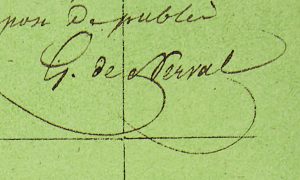 de publier
G. de Nerval